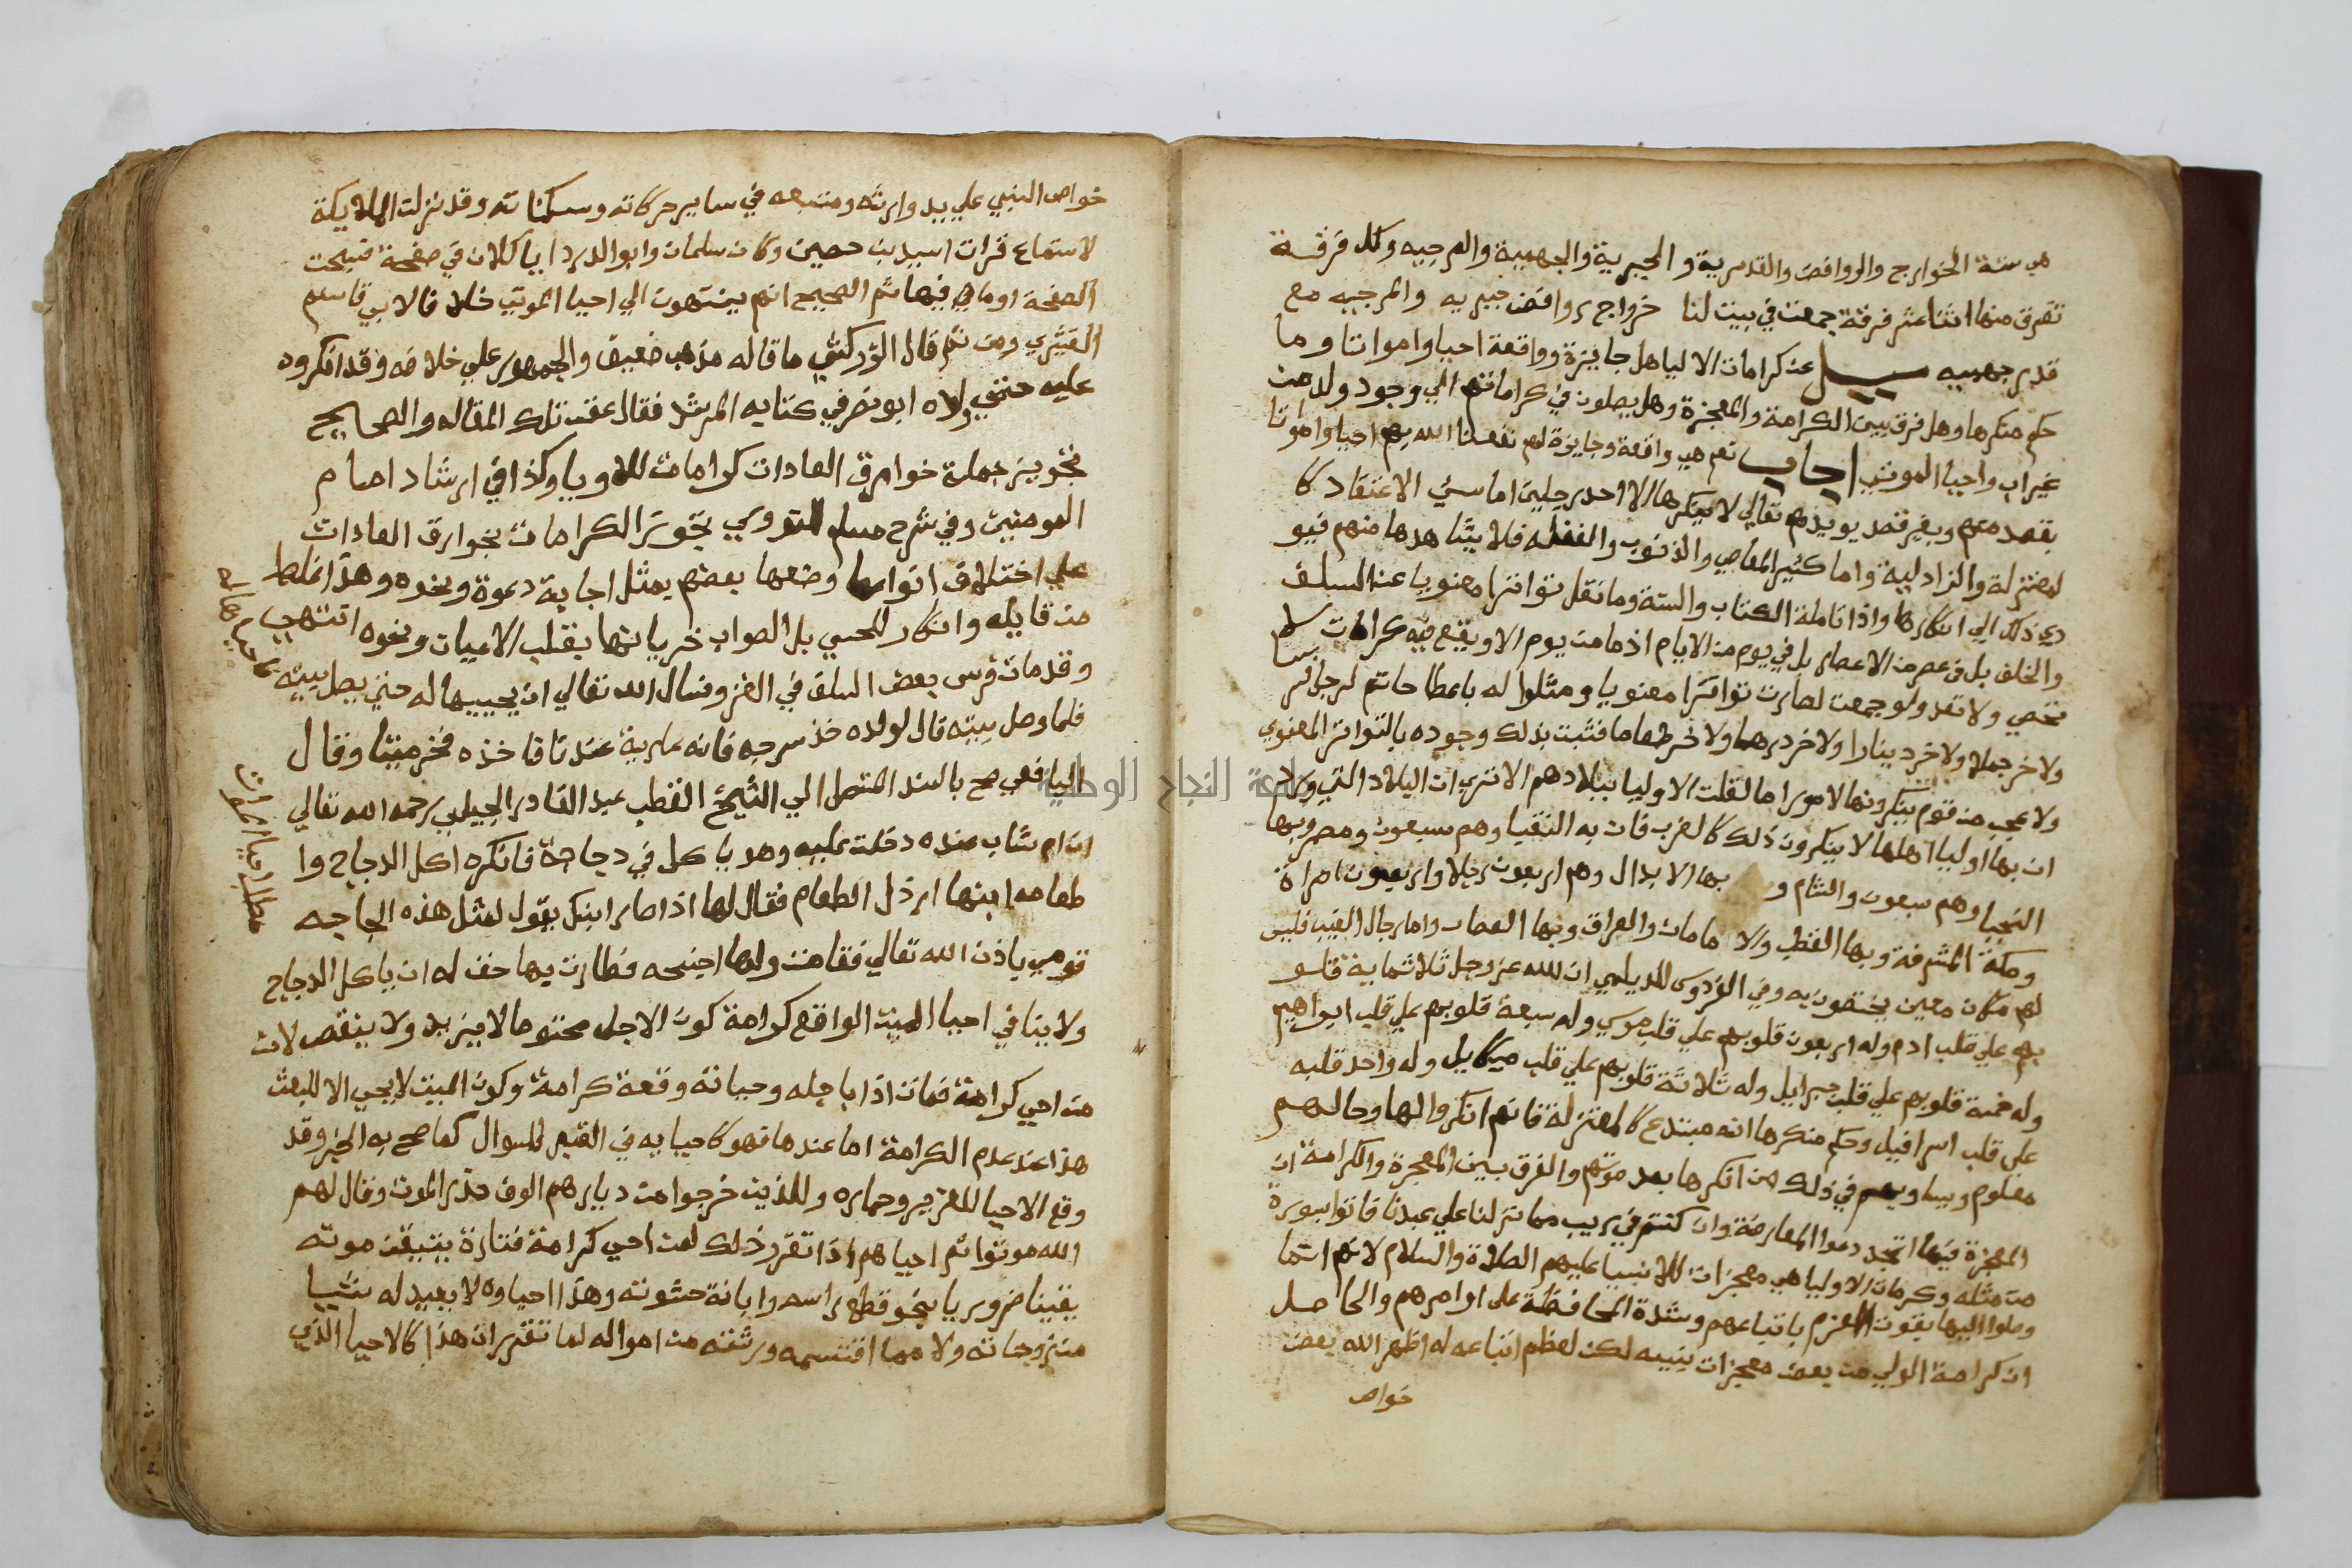 هي ستة الخوارج والروافض والقدرية والجبرية والجهمية والمرجيه وكل فرقة
تفرق منها اثنا عشر فرقة جمعت في بيت لنا خروارج روافض جبريه والمرجيه مع
قدر جهميه سيل عن كرامات الاليا هل جايزة وواقعة احيا وامواتا وما
حكم منكرها وهل فرق بين الكرامة والمعجزة وهل يصلون في كراماتهم الي وجود ولد من
غير اب واحيا الموتي اجاب نعم هي واقعة وجايزة لهم نفعنا الله بهم احيا وامواتا
بقصد منهم وبغير قصد يويدهم تعالي لا ينكرها الا احد رجلين اما سيئ الاعتقاد كا
لمعتزلة والزادلية واما كثير المعاصي والذنوب والغفله فلا يشاهدها منهم فيو
دي ذلك الي انكارها واذا تاملة الكتاب والسنة وما نقل تواترا معنويا عن السلف
والخلف بل في عصر من الاعصار بل في يوم من الايام اذ ما من يوم الا ويقع فيه كرامات لا
تحصي ولا تعد ولو جمعت لصارت تواترا معنويا ومثلوا له باعطا حاتم لرجل فرسا
ولاخر جملا ولاخر دينارا ولاخر درهما ولاخر طعاما فثبت بذلك وجوده بالتواتر المعنوي
ولا عجب من قوم ينكرونها لامور اما لقلت الاوليا ببلادهم الا تري ان البلاد التي ورد
ان بها اوليا اهلها لا ينكرون ذلك كالغرب فان به النقبا وهم سبعون ومصر وبها
النجبا وهم سبعون والشام و بها الابدال وهم اربعون رجلا واربعون امراة
ومكة المشرفة وبها القطب والامامان والعراق وبها العصاب واما رجال الغيب فليس
لهم مكان معين يختصون به وفي الفردوس للديلمي ان لله عز وجل ثلاثماية قلو
بهم علي قلب ادم وله اربعون قلوبهم علي قلب موسي وله سبعة قلوبهم علي قلب ابراهيم
وله خمسة قلوبهم علي قلب جبرايل وله ثلاثة قلوبهم علي قلب ميكايل وله واحد قلبه
علي قلب اسرافيل وحكم منكرها انه مبتدع كالمعتزلة فانهم انكروا لها وحالهم
معلوم ويساويهم في ذلك من انكرها بعد موتهم والفرق بين المعجزة والكرامة ان
المعجزة فيها التحد دعوا المعارضة وان كنتم في ريب مما نزلنا علي عبدنا فاتوا بسورة
من مثله وكرمات الاوليا هي معجزات للانبيا عليهم الصلاة والسلام لانهم انما
وصلوا اليها بقوت العزم باتباعهم وشدة المحافظة على اوامرهم والحاصل
ان كرامة الولي من بعض معجزات نبيه لكن لعظم اتباعه له اظهر الله بعض
خواص
خواص النبي علي يد وارثه ومتبعه في ساير حركاته وسكناته وقد نزلت الملايكة
لاستماع قرات اسيد بن حصين وكان سلمان وابو الدردا ياكلان في صفحة فسبحت
الصفحة او ما في فيها ثم الصحيح انهم ينتهون الي احيا الموتي خلافا لابي قاسم
القشري ومن ثم قال الزركشي ما قاله مذهب ضعيف والجمهور علي خلافه وقد انكروه
عليه حتي ولده ابو نصر في كتابه المرشد فقال عقب تلك المقاله والصحايح
تجويز جملة خوارق العادات كرامات للاوليا وكذا في ارشاد امام
المومنين وفي شرح مسلم للنووي تجوز الكرامات بخوارق العادات
علي اختلاف انواعها وخصها بعضهم بمثل اجابة دعوة ونحوه وهذا غلط
من قايله وانكار للحسي بل الصواب خريانها بقلب الاعيان ونحوه انتهي
وقد مات فرس بعض السلف في الغزو فسال الله تعالي ان يحييها له حتي يصل بيته
فلما وصل بيته قال لولده خذ سرجه فانه عارية عندنا فاخذه فخر ميتا وقال
اليافعي صح بالسند المتصل الي الشيخ القطب عبد القادر الجيلي رحمه الله تعالي
ان ام شاب عنده دخلت عليه وهو ياكل في دجاجة فانكره اكل الدجاج وا
طعامه ابنها ارذل الطعام فقال لها اذا صار ابنكي يقول لمثل هذه الجاجه
قومي باذن الله تعالي فقامت ولها اجنحه فطارت بها حق له ان ياكل الدجاج
ولا ينافي احيا الميت الواقع كرامة كون الاجل محتوما لا يزيد ولا ينقص لان
من احي كرامة فمات اذا باجله وحياته وقعة كرامة وكون الميت لا يحي الا للبعث
هذا عند عدم الكرامة اما عندها فهو كاحيايه في القبر للسوال كما صح به الخبر وقد
وقع الاحيا للعزير وحماره وللذين خرجوا من ديارهم الوف حذر الموت وقال لهم
الله موتوا ثم احياهم اذا تقرر ذلك لمن احي كرامة فتارة يتيقن موته
يقينا ضروريا بنحو قطع راسه وابانة حشوته وهذا احياوه لا يعيد له شيا
من زوجاته ولا مما اقتسمه ورثته من امواله لما تقرر ان هذا كالاحيا الذي
مطلب احيا اموات